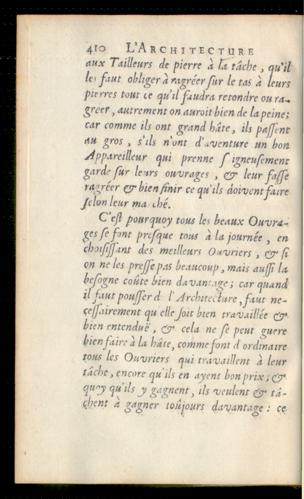 410 L'ARCHITECTURE
aux Tailleurs de pierre à la tâche, qu'il
les faut obliger à ragréer sur le tas à leurs
pierres tout ce qu'il faudra retondre ou ra-
gréer, autrement on auroit bien de la peine:
car comme ils ont grand hâte, ils passent
au gros, s'ils n'ont d'aventure un bon
Appareilleur qui prenne s igneusement
garde sur leurs ouvrages, & leur fasse
ragréer & bien finir ce qu'ils doivent faire
selon leur ma ché.
C'est pourquoy tous les beaux Ouvra-
ges se font presque tous à la journée, en
choisissant des meilleurs Ouvriers, & si
on ne les presse pas beaucoup, mais aussi la
besogne coûte bien davantage; car quand
il faut pousser d l'Architecture, faut ne-
cessairement qu'elle soit bien travaillée &
bien entenduë, & cela ne se peut guere
bien faire à la hâte, comme font d ordinaire
tous les Ouvriers qui travaillent à leur
tâche, encore qu'ils en ayent bon prix; &
quoy qu'ils y gagnent, ils veulent & tâ-
chent à gagner toûjours davantage: ce